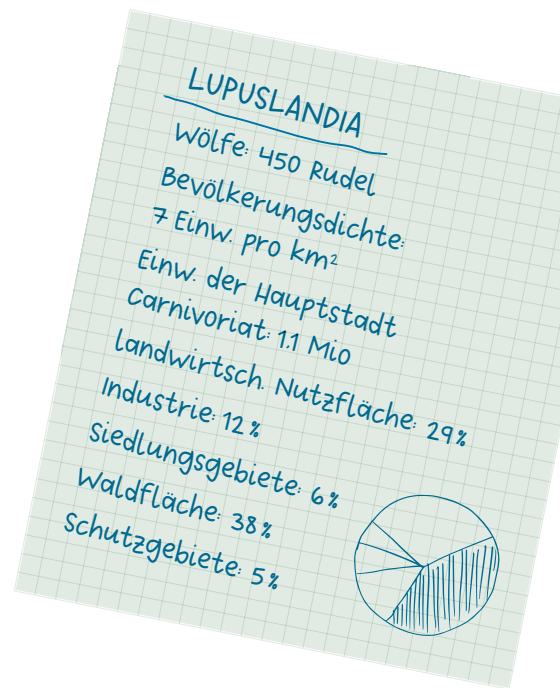 LUPUSLANDIA
Wölfe: 450 Rudel
Bevölkerungsdichte:
7 Einw. pro km²
Einw. der Hauptstadt
Carnivoriat: 1.1 Mio
landwirtsch. Nutzfläche: 29%
Industrie: 12%
Siedlungsgebiete: 6%
Waldfläche: 38%
Schutzgebiete: 5%